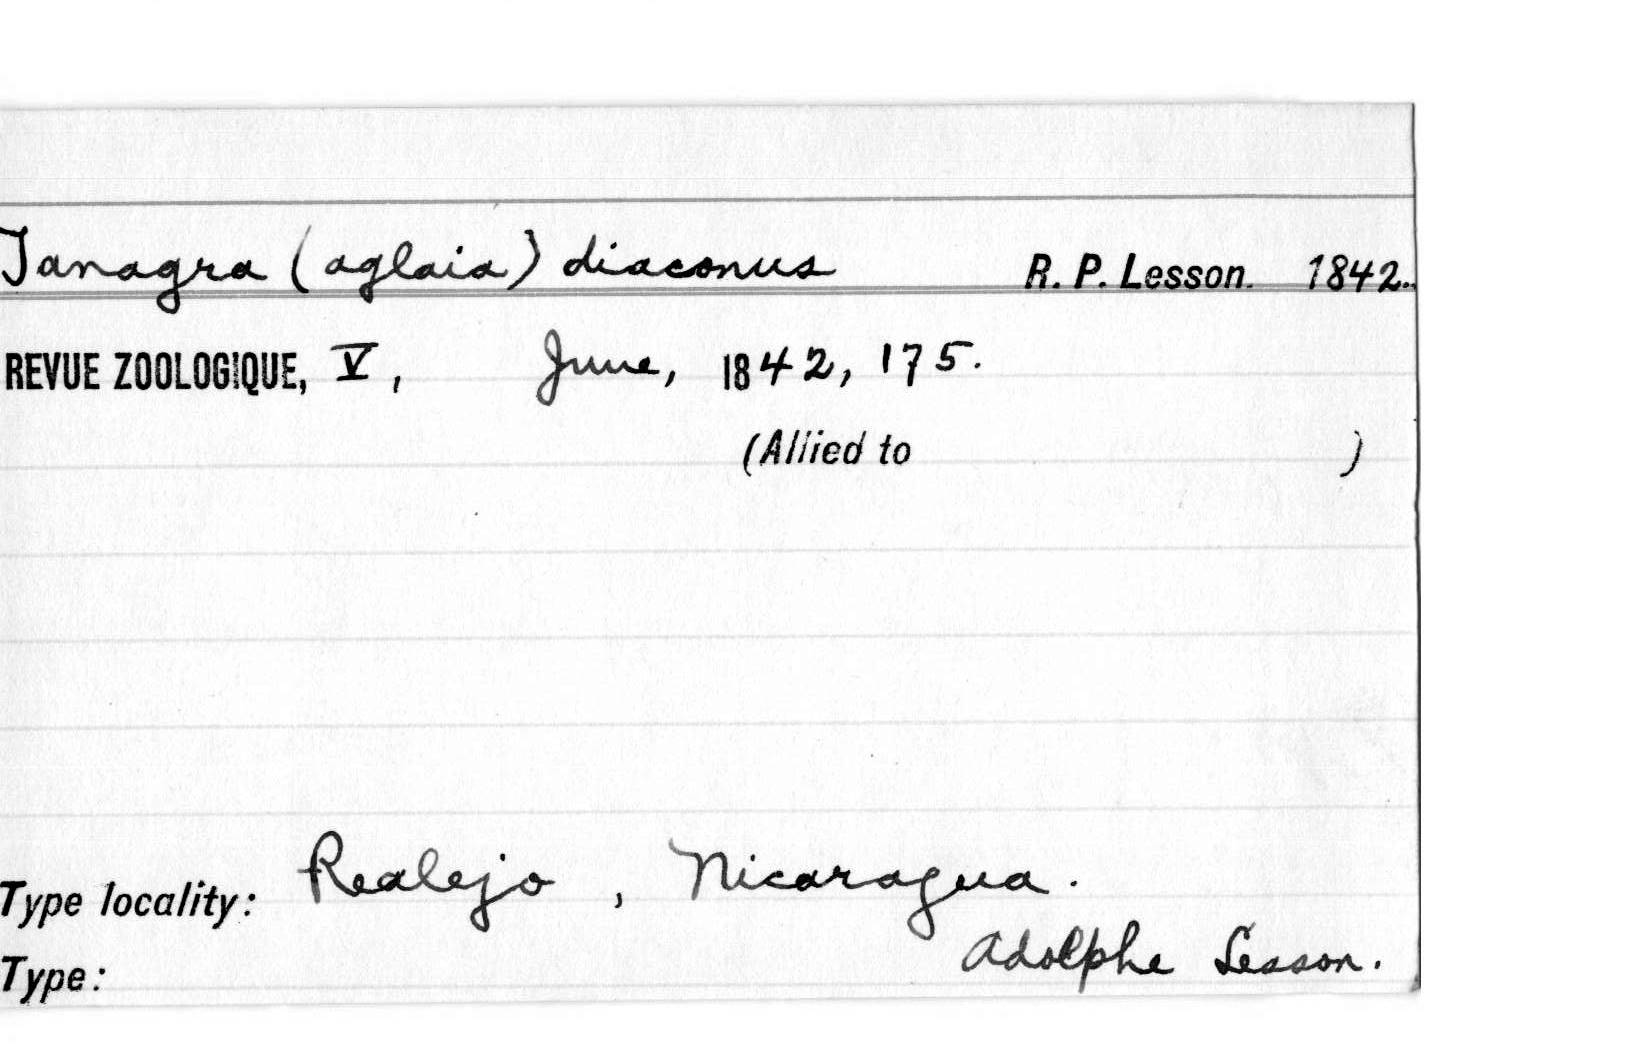 Tanagra (aglaia) diaconus R. P. Lesson. 1842.
REVUE ZOOLOGIQUE, V, June, 1842, 175.
(Allied to )
Type locality: Realejo, Nicaragua.
Adolphe Lesson.
Type: